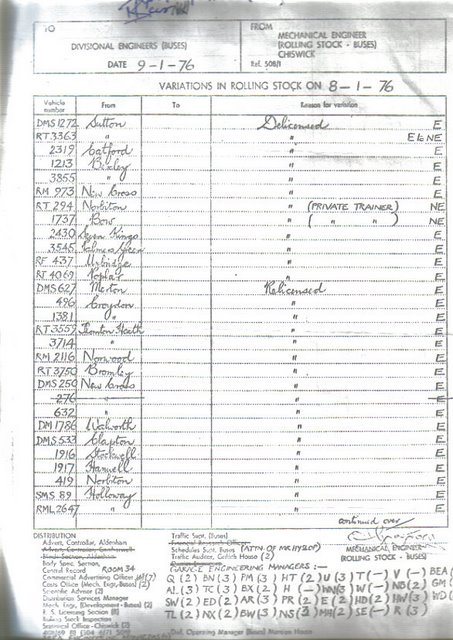 TO
DIVISIONAL ENGINEERS (BUSES)
DATE 9-1-76
FROM
MECHANICAL ENGINEER
(ROLLING STOCK - BUSES)
CHISWICK
Ref. 508/1
VARIATIONS IN ROLLING STOCK ON 8-1-76
Vehicle number From To Reason for variation
DMS 1272 Sutton Delicensed E
RT 3363 " " E to NE
2319 Catford " E
1213 Bexley " E
3855 " " E
RM 973 New Cross " E
RT 294 Norbiton " (PRIVATE TRAINER) NE
1737 Bow " ( " " ) NE
2430 Seven Kings " E
3545 Palmers Green " E
RF 437 Uxbridge " E
RT 4069 Poplar " E
DMS 627 Merton Relicensed E
496 Croydon " E
1381 " " E
RT 3559 Thornton Heath " E
3714 " " E
RM 2116 Norwood " E
RT 3750 Bromley " E
DMS 250 New Cross " E
276 " " E
632 " " E
DM 1786 Walworth " E
DMS 533 Clapton " E
1916 Stockwell " E
1917 Hanwell " E
419 Norbiton " E
SMS 89 Holloway " E
RML 2647 " " E
continued over
MECHANICAL ENGINEER
(ROLLING STOCK - BUSES)
DISTRIBUTION
Advert. Controller, Aldenham
Body Spec. Section
Central Record ROOM 34
Commercial Advertising Officer
Costs Officer (Mech. Engr., Buses) (2)
Scientific Advisor (2)
Distribution Services Manager
Mech. Engr. (Development - Buses) (2)
L.S. Licensing Section (8)
Rolling Stock Inspection
Statistical Officer - Chiswick (2)
Traffic Supt. (Buses)
Schedules Supt. Buses (ATTN. OF MR HYSLOP)
Traffic Auditor, Griffith House (2)
GARAGE ENGINEERING MANAGERS :-
Q (2) BN (3) PM (3) HT (2) U (3) T (-) V (-) BEA
AL (3) TC (3) BX (2) H (-) WN (3) W (-) NB (2) GM
SW (2) ED (2) AR (3) PR (2) E (2) HD (2) HW (3) WD
TL (2) NX (2) BW (3) NS (3) MH (2) SE (-) R (3)
Dist. Operating Manager (Buses) Mansion House